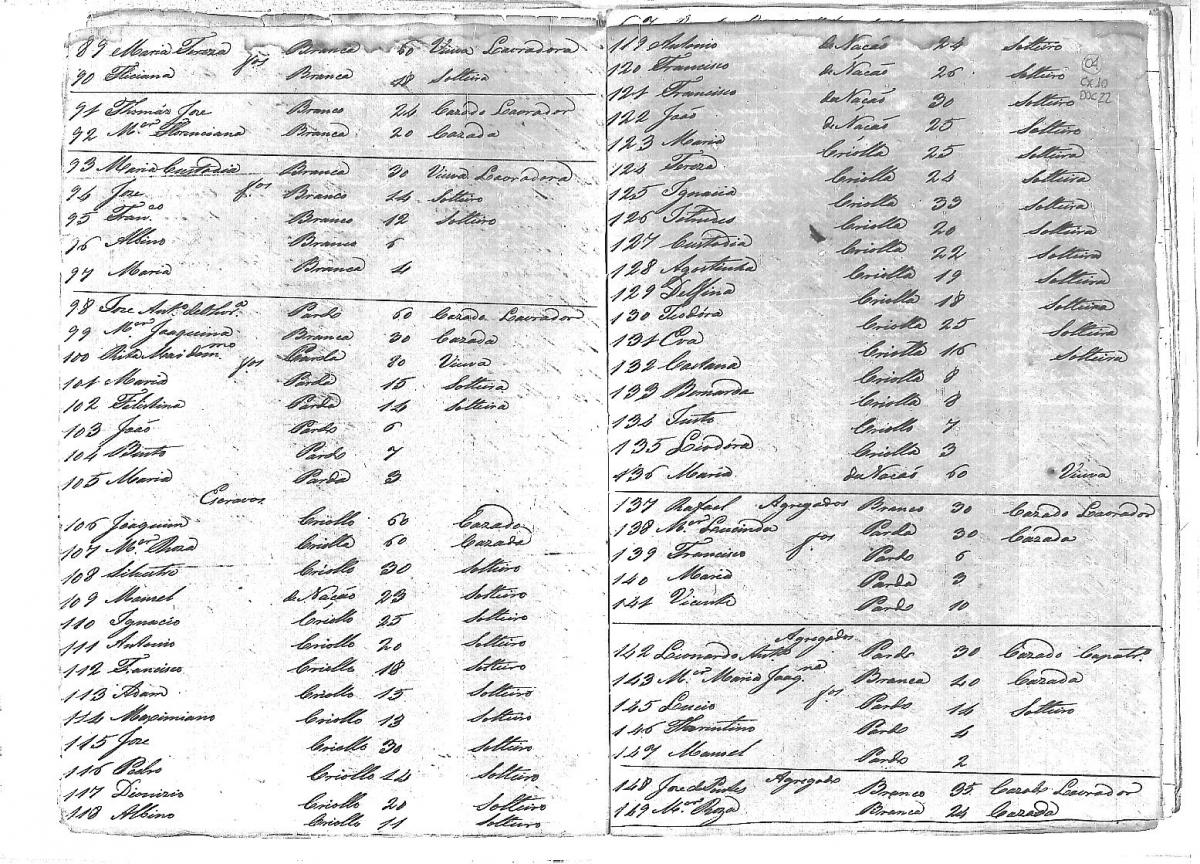 89 Maria Tereza Branca 60 Viuva Lavradora
fos
90 Branca 18 Solteira
91 Thomás Joze Branco 24 Cazado Lavrador
92 M.er Florenciana Branca 20 Cazada
93 Maria Custodia Branca 30 Viuva Lavradora
94 Joze fos Branco 14 Solteiro
95 Fran.co Branco 12 Solteiro
96 Albino Branco 6
97 Maria Branca 4
98 Joze Ant.o Pardo 60 Cazado Lavrador
99 M.er Joaquina Branca 30 Cazada
100 Rita Parda 80 Viuva
fos
101 Maria Parda 15 Solteira
102 Felestina Parda 14 Solteira
103 João Pardo 6
104 Bento Pardo 7
105 Maria Parda 3
Escravos
106 Joaquim Criollo 60 Cazado
107 M.er Roza Criolla 60 Cazada
108 Silvestre Criollo 30 Solteiro
109 Manoel de Nação 23 Solteiro
110 Ignacio Criollo 25 Solteiro
111 Antonio Criollo 20 Solteiro
112 Francisco Criollo 18 Solteiro
113 Adam Criollo 15 Solteiro
114 Maximiano Criollo 13 Solteiro
115 Joze Criollo 30 Solteiro
116 Pedro Criollo 44 Solteiro
117 Dionizio Criollo 20 Solteiro
118 Albino Criollo 11 Solteiro
119 Antonio de Nação 24 Solteiro
120 Francisco de Nação 26 Solteiro
121 Francisco de Nação 30 Solteiro
122 João de Nação 25 Solteiro
123 Maria Criolla 25 Solteira
124 Tereza Criolla 24 Solteira
125 Ignacia Criolla 33 Solteira
126 Criolla 20 Solteira
127 Custodia Criolla 22 Solteira
128 Agostinha Criolla 19 Solteira
129 Delfina Criolla 18 Solteira
130 Teodóra Criolla 25 Solteira
131 Eva Criolla 16 Solteira
132 Caetana Criolla 8
133 Bernarda Criolla 8
134 Justo Criollo 7
135 Leodóra Criolla 3
136 Maria de Nação 60 Viuva
137 Rafael Agregados Branco 30 Cazado Lavrador
138 M.er Leucinda Parda 30 Cazada
fos
139 Francisco Pardo 6
140 Maria Parda 3
141 Vicente Pardo 10
Agregados
142 Leonardo Pardo 30 Cazado
143 M.er Maria Joaq.na Branca 40 Cazada
fos
145 Lucio Pardo 14 Solteiro
146 Florentino Pardo 4
147 Manoel Pardo 2
148 Joze de Agregado Branco 35 Cazado Lavrador
149 M.er Roza Branca 24 Cazada
(04)
CX 10
DOC 22